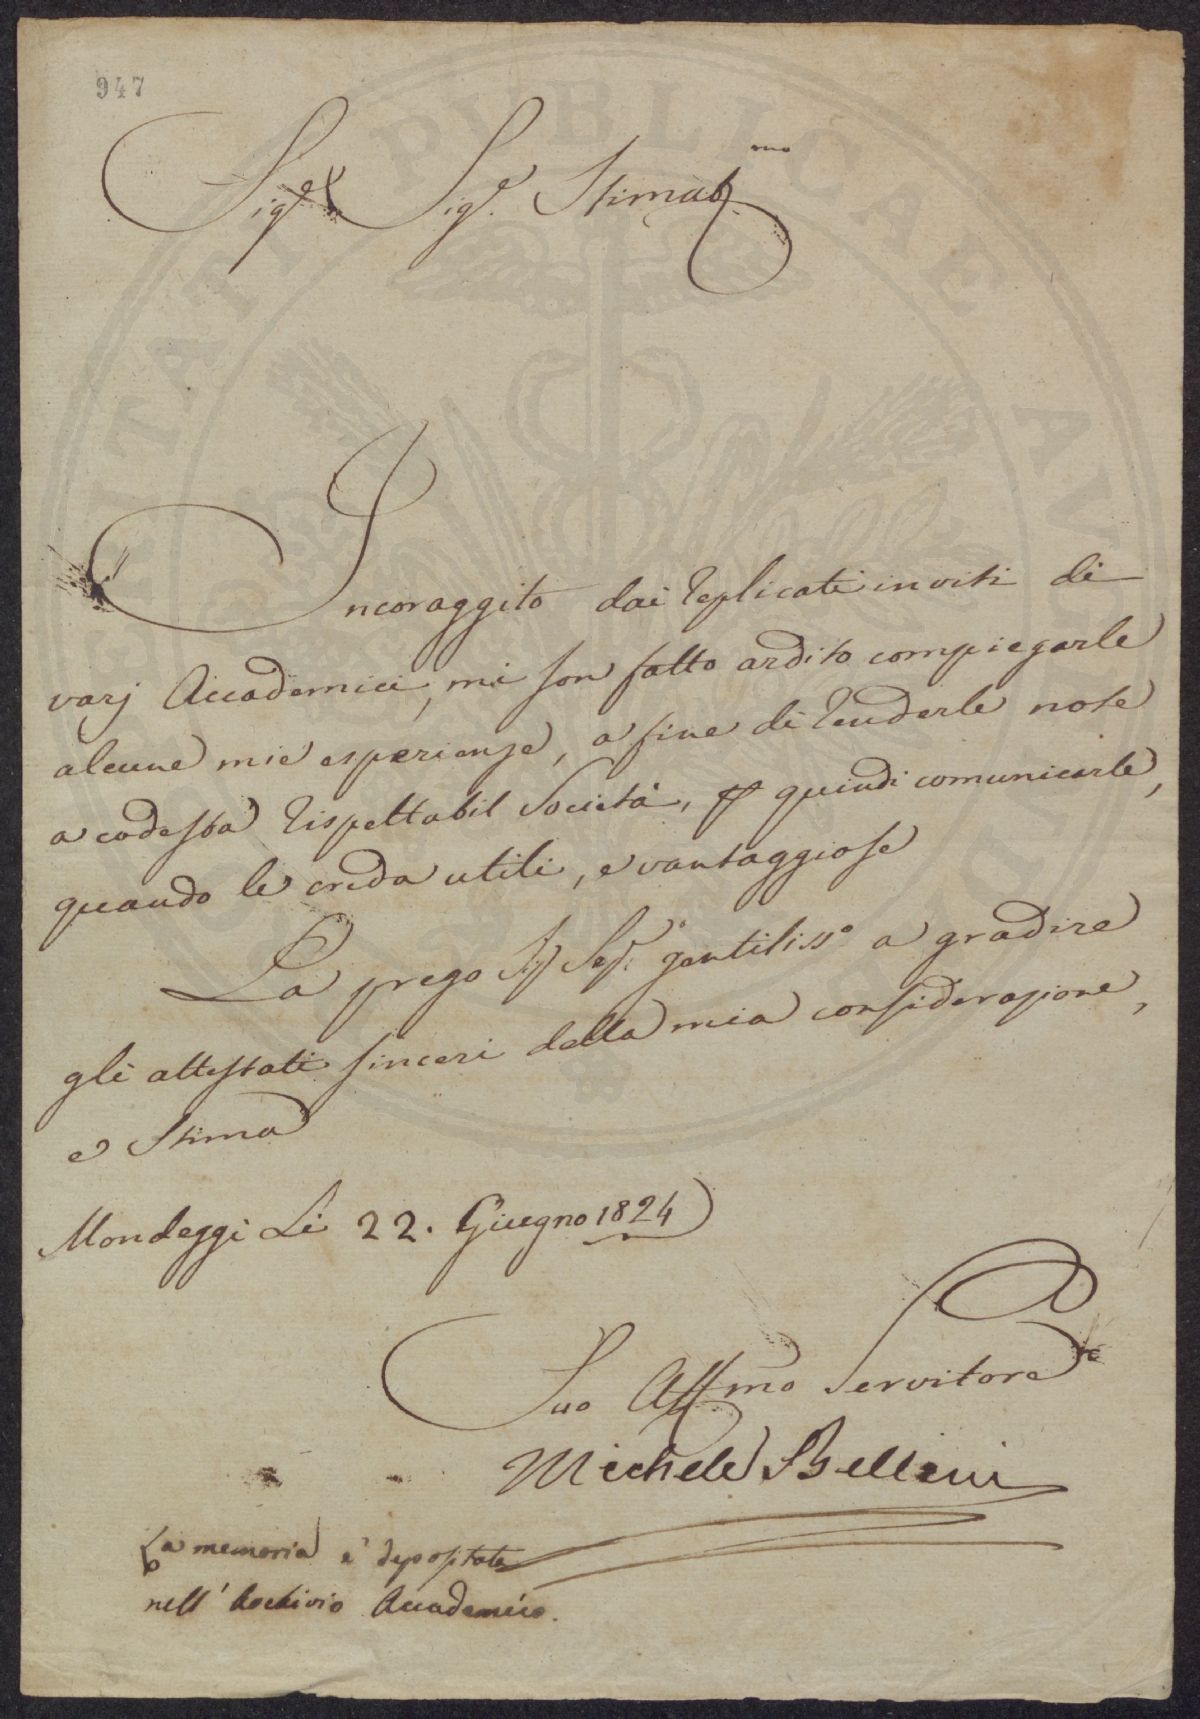 947
Sig.e Sig.e Stimab.mo
Incoraggito dai replicati inviti di
varj Accademici, mi son fatto ardito compiegarle
alcune mie esperienze, a fine di renderle note
a codesta rispettabil Società, e quindi comunicarle,
quando le creda utili, e vantaggiose
La prego Sig Seg.o gentiliss.o a gradire
gli attestati sinceri della mia considerazione,
e Stima
Mondeggi Li 22. Giugno 1824
Suo Affmo Servitore
Michele Bellini
La memoria è depositata
nell'Archivio Accademico.
PUBLICAE